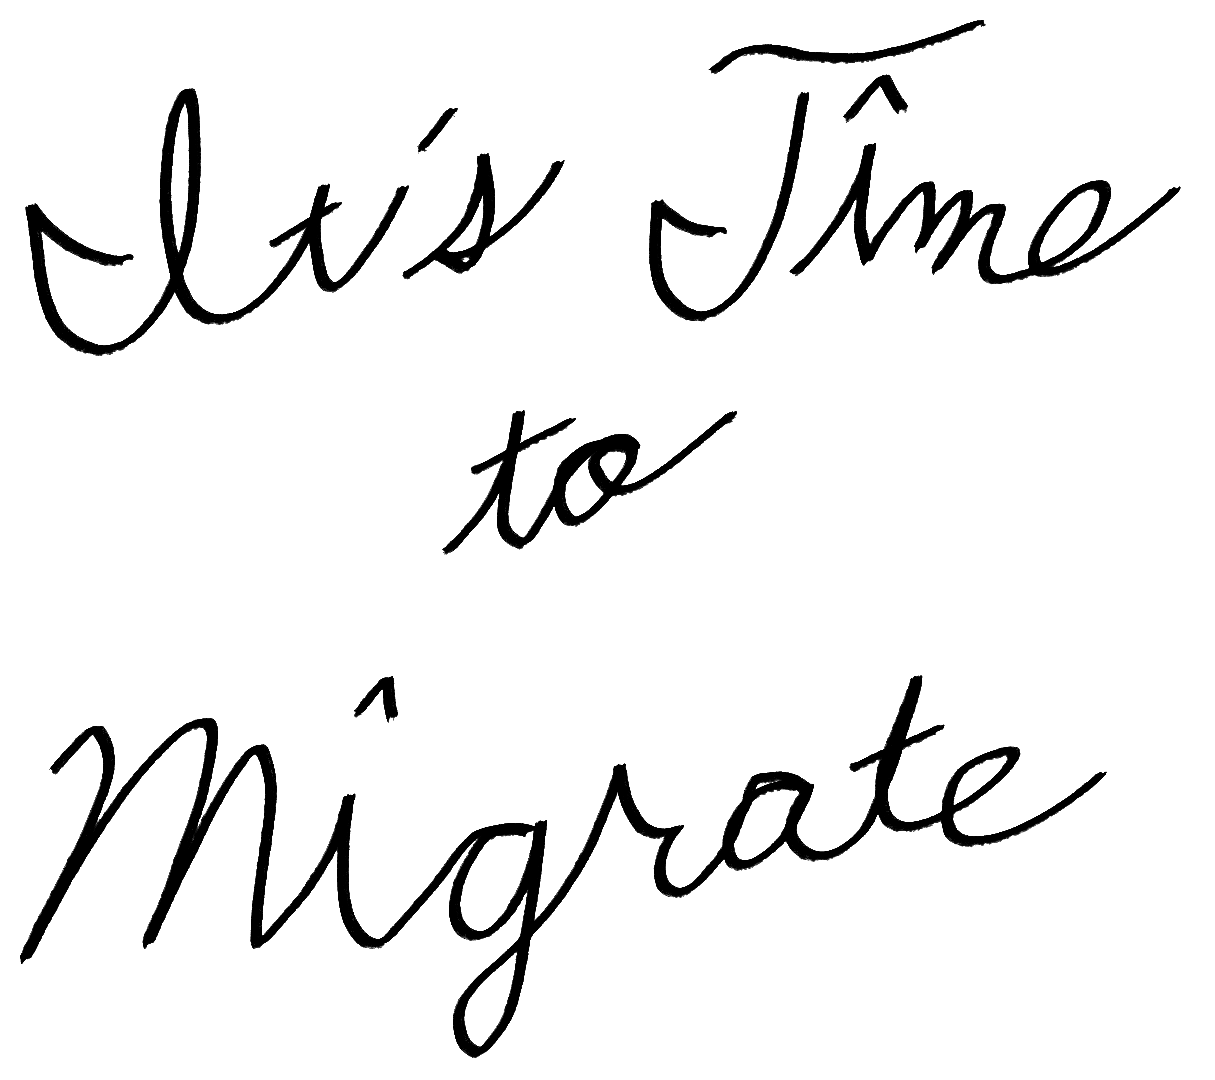 It's Time
to
Migrate